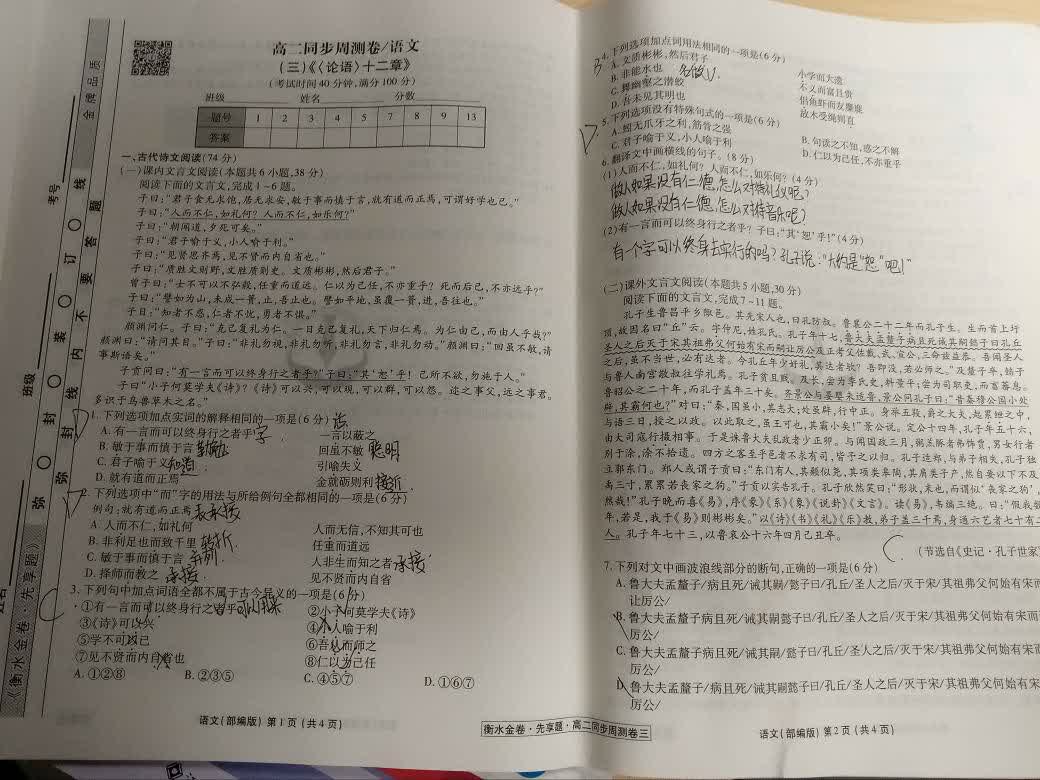 高二同步周测卷/语文
(三)《〈论语〉十二章》
(考试时间40分钟,满分100分)
班级 姓名 分数
题号 1 2 3 4 5 7 8 9 13
答案
一、古代诗文阅读(74分)
(一)课内文言文阅读(本题共6小题,38分)
阅读下面的文言文,完成1~6题。
子曰:“君子食无求饱,居无求安,敏于事而慎于言,就有道而正焉,可谓好学也已。”
子曰:“人而不仁,如礼何?人而不仁,如乐何?”
子曰:“朝闻道,夕死可矣。”
子曰:“君子喻于义,小人喻于利。”
子曰:“见贤思齐焉,见不贤而内自省也。”
子曰:“质胜文则野,文胜质则史。文质彬彬,然后君子。”
曾子曰:“士不可以不弘毅,任重而道远。仁以为己任,不亦重乎?死而后已,不亦远乎?”
子曰:“譬如为山,未成一篑,止,吾止也。譬如平地,虽覆一篑,进,吾往也。”
子曰:“知者不惑,仁者不忧,勇者不惧。”
颜渊问仁。子曰:“克己复礼为仁。一日克己复礼,天下归仁焉。为仁由己,而由人乎哉?”
颜渊曰:“请问其目。”子曰:“非礼勿视,非礼勿听,非礼勿言,非礼勿动。”颜渊曰:“回虽不敏,请
事斯语矣。”
子贡问曰:“有一言而可以终身行之者乎?”子曰:“其‘恕’乎!己所不欲,勿施于人。”
子曰“小子何莫学夫《诗》?《诗》可以兴,可以观,可以群,可以怨。迩之事父,远之事君。
多识于鸟兽草木之名。”
1. 下列选项加点实词的解释相同的一项是(6分)
A. 有一言而可以终身行之者乎 字 一言以蔽之
B. 敏于事而慎于言 勤勉 回虽不敏 聪明
C. 君子喻于义 知道 引喻失义
D. 就有道而正焉 金就砺则利 接近
2. 下列选项中“而”字的用法与所给例句全都相同的一项是(6分)
例句:就有道而正焉 表承接
A. 人而不仁,如礼何 人而无信,不知其可也
B. 非利足也而致千里 转折 任重而道远
C. 敏于事而慎于言 人非生而知之者 承接
D. 择师而教之 承接 见不贤而内自省
3. 下列句中加点词语全都不属于古今异义的一项是(6分)
①有一言而可以终身行之者乎 可以用来 ②小子何莫学夫《诗》
③《诗》可以兴 ④小人喻于利
⑤学不可以已 ⑥吾从而师之
⑦见不贤而内自省也 ⑧仁以为己任
A. ①②⑧ B. ②③⑤ C. ④⑤⑦ D. ①⑥⑦
语文(部编版) 第1页(共4页)
4. 下列选项加点词用法相同的一项是(6分)
A. 文质彬彬,然后君子 小学而大遗
B. 非能水也 名做V. 不义而富且贵
C. 舞幽壑之潜蛟 侣鱼虾而友麋鹿
D. 吾未见其明也 故木受绳则直
5. 下列选项没有特殊句式的一项是(6分)
A. 蚓无爪牙之利,筋骨之强 B. 句读之不知,惑之不解
C. 君子喻于义,小人喻于利 D. 仁以为己任,不亦重乎
6. 翻译文中画横线的句子。(8分)
(1)人而不仁,如礼何?人而不仁,如乐何?(4分)
做人如果没有仁德,怎么对待礼仪呢?
做人如果没有仁德,怎么对待音乐呢?
(2)有一言而可以终身行之者乎?子曰:“其‘恕’乎!”(4分)
有一个字可以终身去实行的吗?孔子说:“大约是“恕”吧!”
(二)课外文言文阅读(本题共5小题,30分)
阅读下面的文言文,完成7~11题。
孔子生鲁昌平乡陬邑。其先宋人也,曰孔防叔。鲁襄公二十二年而孔子生。生而首上圩
顶,故因名曰“丘”云。字仲尼,姓孔氏。孔子年十七,鲁大夫孟釐子病且死诫其嗣懿子曰孔丘
圣人之后灭于宋其祖弗父何始有宋而嗣让厉公及正考父佐戴、武、宣公,三命兹益恭。吾闻圣人
之后,虽不当世,必有达者。今孔丘年少好礼,其达者欤?吾即没,若必师之。”及釐子卒,懿子
与鲁人南宫敬叔往学礼焉。孔子贫且贱。及长,尝为季氏史,料量平;尝为司职吏,而畜蕃息。
鲁昭公之二十年,而孔子盖年三十矣。齐景公与晏婴来适鲁,景公问孔子曰:“昔秦穆公国小处
辟,其霸何也?”对曰:“秦,国虽小,其志大;处虽辟,行中正。身举五羖,爵之大夫,起累绁之中,
与语三日,授之以政。以此取之,虽王可也,其霸小矣!”景公说。定公十四年,孔子年五十六,
由大司寇行摄相事。于是诛鲁大夫乱政者少正卯。与闻国政三月,粥羔豚者弗饰贾,男女行者
别于涂,涂不拾遗。四方之客至乎邑者不求有司,皆予之以归。孔子适郑,与弟子相失,孔子独
立郭东门。郑人或谓子贡曰:“东门有人,其颡似尧,其项类皋陶,其肩类子产,然自要以下不及
禹三寸,累累若丧家之狗。”子贡以实告孔子。孔子欣然笑曰:“形状,末也,而谓似‘丧家之狗’,
然哉!”孔子晚而喜《易》,序《彖》《系》《象》《说卦》《文言》。读《易》,韦编三绝。曰:“假我数
年,若是,我于《易》则彬彬矣。”以《诗》《书》《礼》《乐》教,弟子盖三千焉,身通六艺者七十有二
人。孔子年七十三,以鲁哀公十六年四月己丑卒。
(节选自《史记·孔子世家
7. 下列对文中画波浪线部分的断句,正确的一项是(6分)
A. 鲁大夫孟釐子/病且死/诫其嗣/懿子曰/孔丘/圣人之后/灭于宋/其祖弗父何/始有宋而
让厉公/
B. 鲁大夫孟釐子病且死/诫其嗣/懿子曰/孔丘/圣人之后/灭于宋/其祖弗父何/始有宋而
厉公/
C. 鲁大夫孟釐子病且死/诫其嗣懿子曰/孔丘/圣人之后/灭于宋/其祖弗父何/始有宋而
厉公/
D. 鲁大夫孟釐子/病且死/诫其嗣懿子曰/孔丘/圣人之后/灭于宋/其祖弗父何/始有宋而
厉公/
衡水金卷·先享题·高二同步周测卷三
语文(部编版) 第2页(共4页)
金榜品质
考号
班级
弥 封 线 内 不 要 答 题
弥 封 装 订 线
《衡水金卷·先享题》